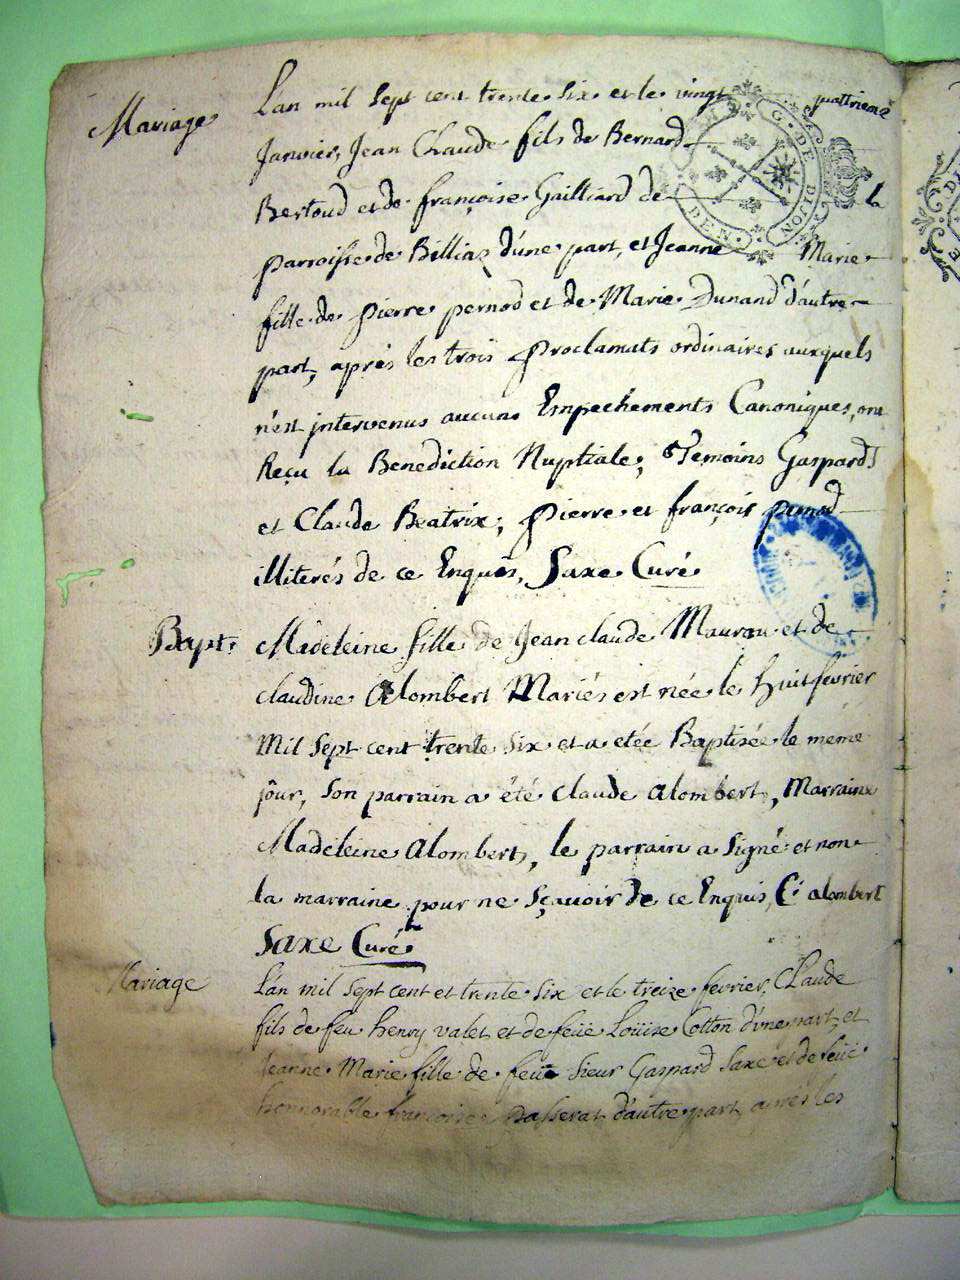 Mariage
L'an mil sept cent trente six et le vingt quattrieme
Janvier, Jean Claude fils de Bernard
Bertoud et de françoise Gailliard de la
parroisse de Billiaz d'une part, et Jeanne Marie
fille de Pierre pernod et de Marie Dunand d'autre
part, après les trois proclamats ordinaires auxquels
n'est intervenus aucuns Empechements Canoniques, ont
Reçu la Benediction Nuptiale; Temoins Gaspard
et Claude Beatrix; pierre et françois pernod
illiterés de ce Enquis, Saxe Curé
Bapt.
Madeleine fille de Jean claude Maurau et de
claudine Alombert Mariés est née le huit fevrier
Mil sept cent trente six et a etée Baptisée le meme
jour, son parrain a été claude alombert, Marraine
Madeleine alombert, le parrain a signé et non
la marraine pour ne sçavoir de ce Enquis, C. alombert
Saxe Curé
Mariage
L'an mil sept cent et trente six et le treize fevrier, Claude
fils de feu henry valet et de feüe Loüise Cotton d'une part, et
Jeanne Marie fille de feu sieur Gaspard Saxe et de feüe
honnorable françoise passerat d'autre part, après les
G. DE DIJON
DEN